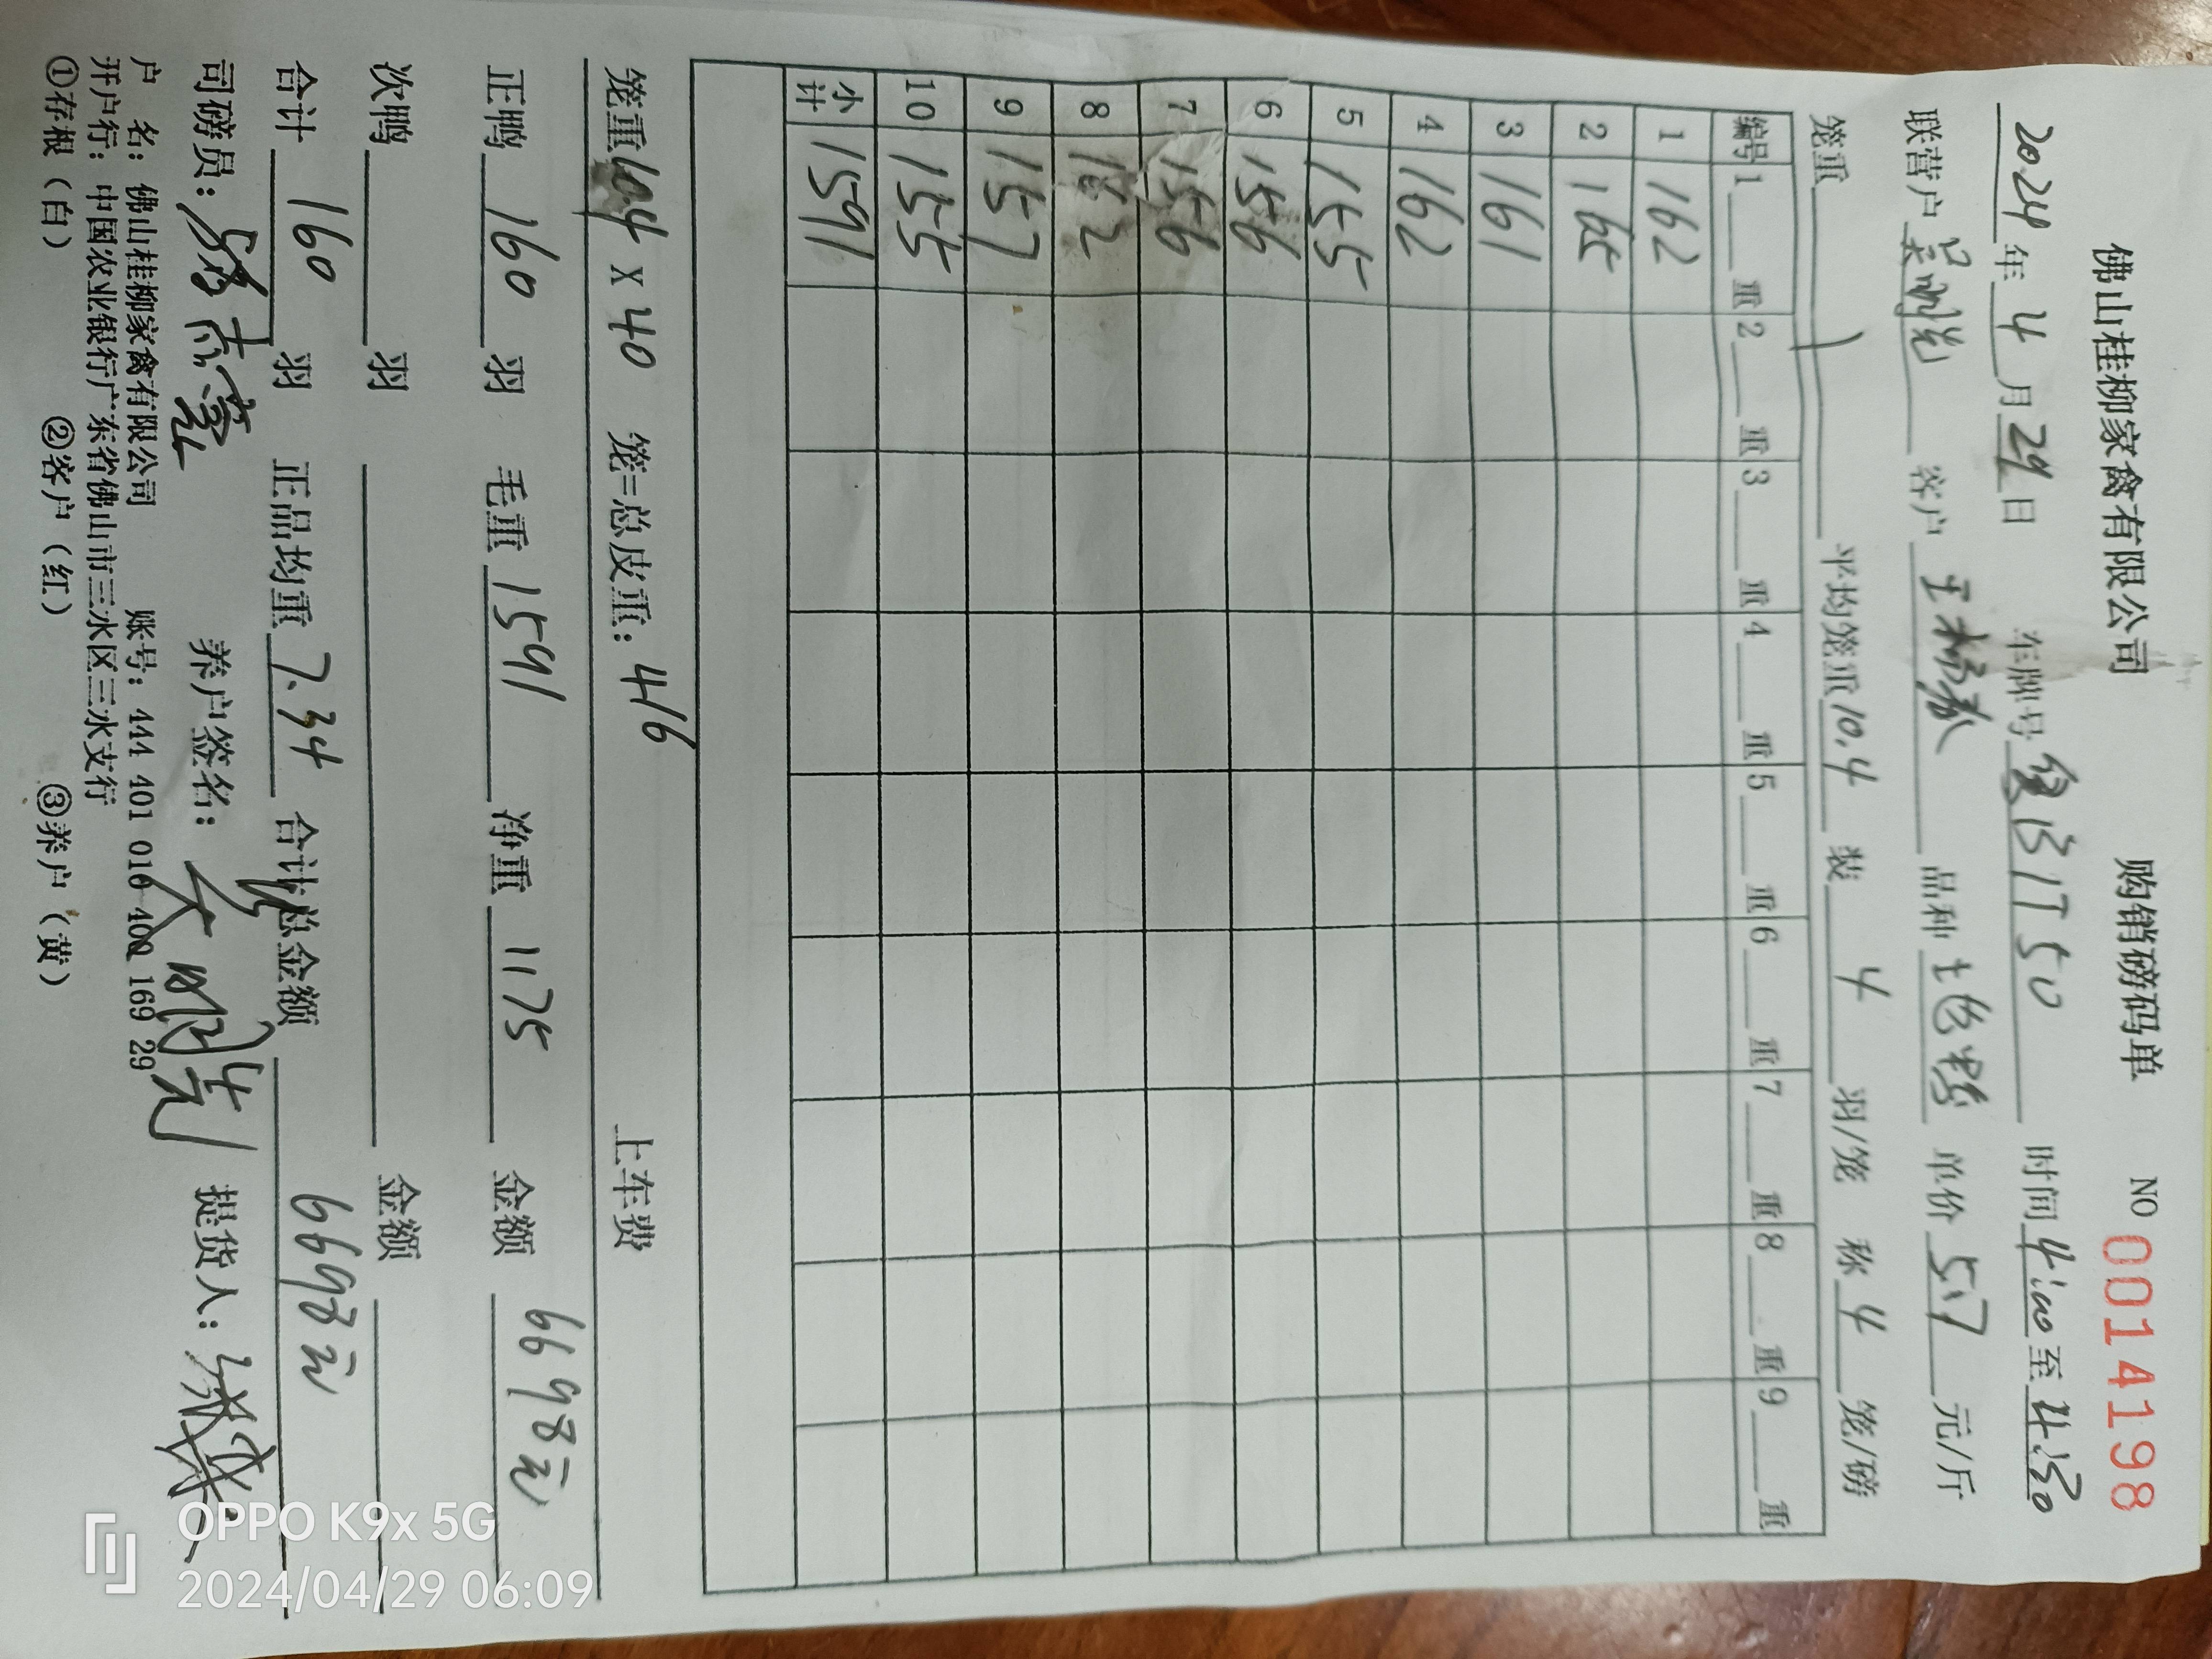 佛山桂柳家禽有限公司 购销磅码单 NO 0014198
2024年4月29日 车牌号 B1T50 时间4:00至4:30
联营户 吴明光 客户 王 品种 土 单价5.7元/斤
笼重 平均笼重10.4 装4羽/笼 称4笼/磅
编号 1 重 2 重 3 重 4 重 5 重 6 重 7 重 8 重 9 重
1 162
2 165
3 161
4 162
5 155
6 156
7 156
8 162
9 157
10 155
小计 1591
笼重10.4 X 40 笼=总皮重：416 上车费
正鸭 160 羽 毛重 1591 净重 1175 金额 6698元
次鸭 羽 金额
合计 160 羽 正品均重 7.34 合计总金额 6698元
司磅员： 养户签名：吴明光 提货人：
户 名：佛山桂柳家禽有限公司 账号：444 401 010 400 169 29
开户行：中国农业银行广东省佛山市三水区三水支行
①存根（白） ②客户（红） ③养户（黄）
OPPO K9x 5G
2024/04/29 06:09